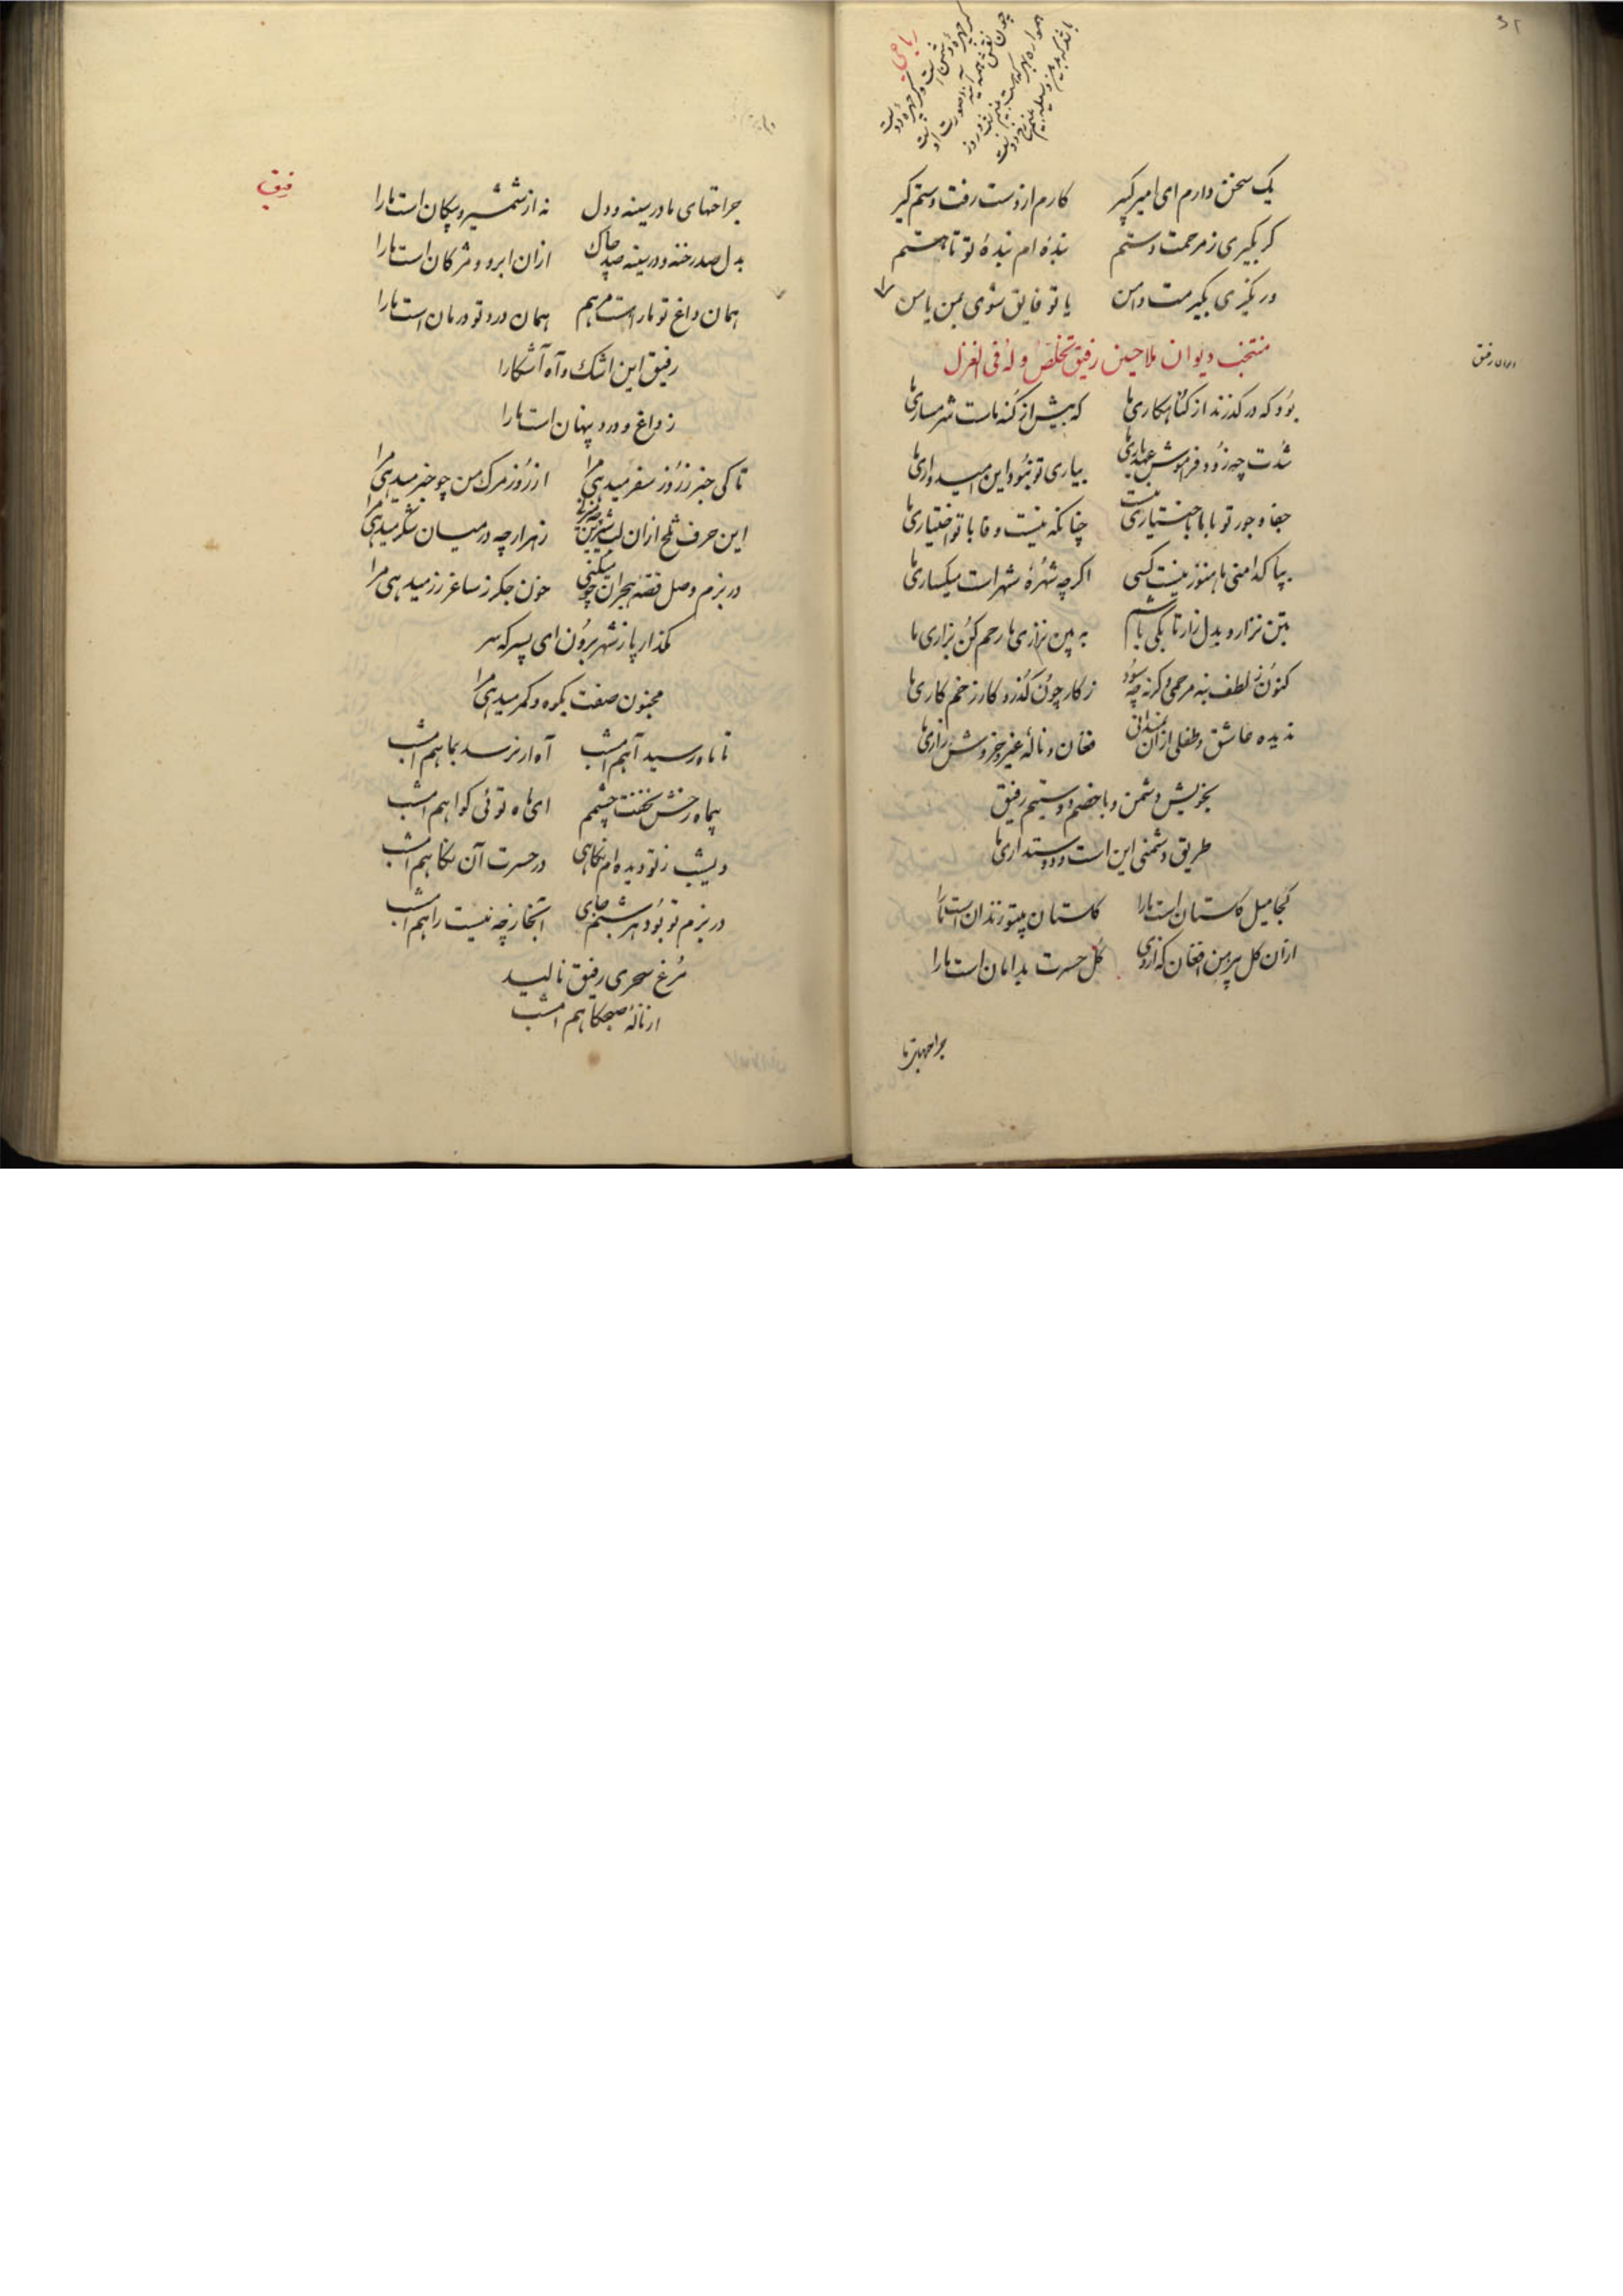 رباعی
یک سخن دارم ای امیر کبیر کارم از دست رفت دستم گیر
گر بگیری ز مرحمت دستم بندهٔ ام بندهٔ تو تا هستم
ور نگیری بگیرمت دامن یا تو فایق شوی بمن یا من
منتخب دیوان ملا حسین رفیق تخلص وله فی الغزل
دیوان رفیق
بود که درگذرند از گناهکاری ما که بیش از گنه ماست شرمساری ما
شدت چه زود فراموش عهد یاری ما بیاری تو نبود این امیدواری ما
جفا و جور تو با ما باختیاری نیست چنانکه نیست وفا با تو اختیاری ما
بپاکدامنی ما هنوز نیست کسی اگر چه شهرهٔ شهر است میکساری ما
بتن نزار و بدل زار تا بکی باشم به بین نزاری ما رحم کن بزاری ما
کنون ز لطف بنه مرهمی وگرنه چه سود ز کار چون گذرد کار زخم کاری ما
ندیده عاشق و طفلی ازان نمیدانی فغان و نالهٔ غیر و خروش و زاری ما
بخویش دشمن و با خصم دوستیم رفیق
طریق دشمنی این است و دوستداری ما
کجا میل گلستان است ما را گلستان بیتو زندان است ما را
ازان گل پیرهن افغان که از وی گل حسرت بدامان است ما را
جراحتهای ما
رفیق
جراحتهای ما در سینه و دل نه از شمشیر و پیکان است ما را
بدل صد رخنه و در سینه صد چاک ازان ابرو و مژگان است ما را
همان داغ تو ما را است مرهم همان درد تو درمان است ما را
رفیق این اشک و آه آشکارا
ز داغ و درد پنهان است ما را
تا کی خبر ز روز سفر میدهی مرا از روز مرگ من چو خبر میدهی مرا
این حرف تلخ ازان لب شیرین زهر را چه در میان شکر میدهی مرا
در بزم وصل قصهٔ هجران چو میکنی خون جگر ز ساغر زر میدهی مرا
مگذار پا ز شهر برون ای پسر که سر
مجنون صفت بکوه و کمر میدهی مرا
تا ماه رسید آهم امشب آه ار نرسد بماهم امشب
بیماه رخش نخفت چشمم ای ماه توئی گواهم امشب
دیشب ز تو دیده ام نگاهی در حسرت آن نگاهم امشب
در بزم تو بود هر شبم جای آنجا ز چه نیست راهم امشب
مرغ سحری رفیق نالید
از نالهٔ صبحگاهم امشب